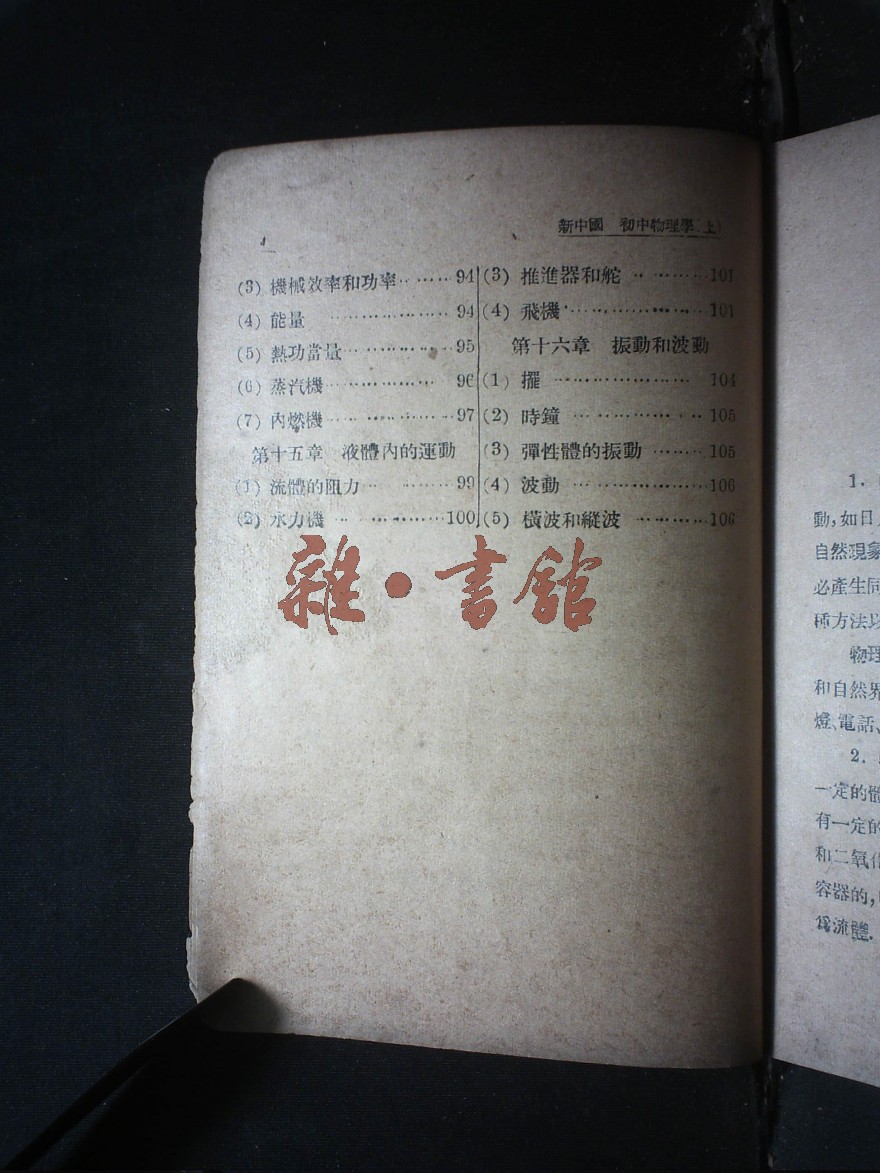 4
新中國 初中物理學(上)
(3) 機械效率和功率……94
(4) 能量………………94
(5) 熱功當量……………95
(6) 蒸汽機………………96
(7) 內燃機………………97
第十五章 液體內的運動
(1) 流體的阻力…………99
(2) 水力機………………100
(3) 推進器和舵…………101
(4) 飛機…………………101
第十六章 振動和波動
(1) 擺……………………104
(2) 時鐘…………………105
(3) 彈性體的振動………105
(4) 波動…………………106
(5) 橫波和縱波…………106
雜·書館
1.
動,如日
自然現象
必產生同
種方法以
物理
和自然界
燈、電話、
2.
一定的體
有一定的
和二氧化
容器的,
爲流體.